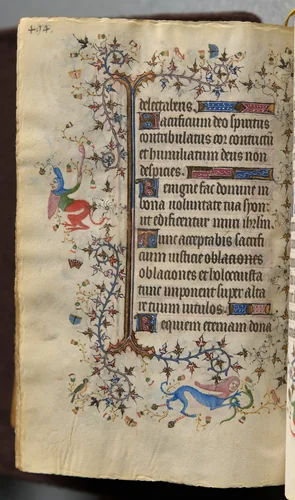 494
delectaberis.
Sacrificium deo spiritus
contribulatus cor contritu
et humiliatum deus non
despicies.
Benigne fac domine in
bona voluntate tua syon
ut edificentur muri ihrlm.
Tunc acceptabis sacrifi
cium iusticie oblaciones
oblaciones et holocausta
tunc imponent super alta
re tuum vitulos.
Requiem eternam dona